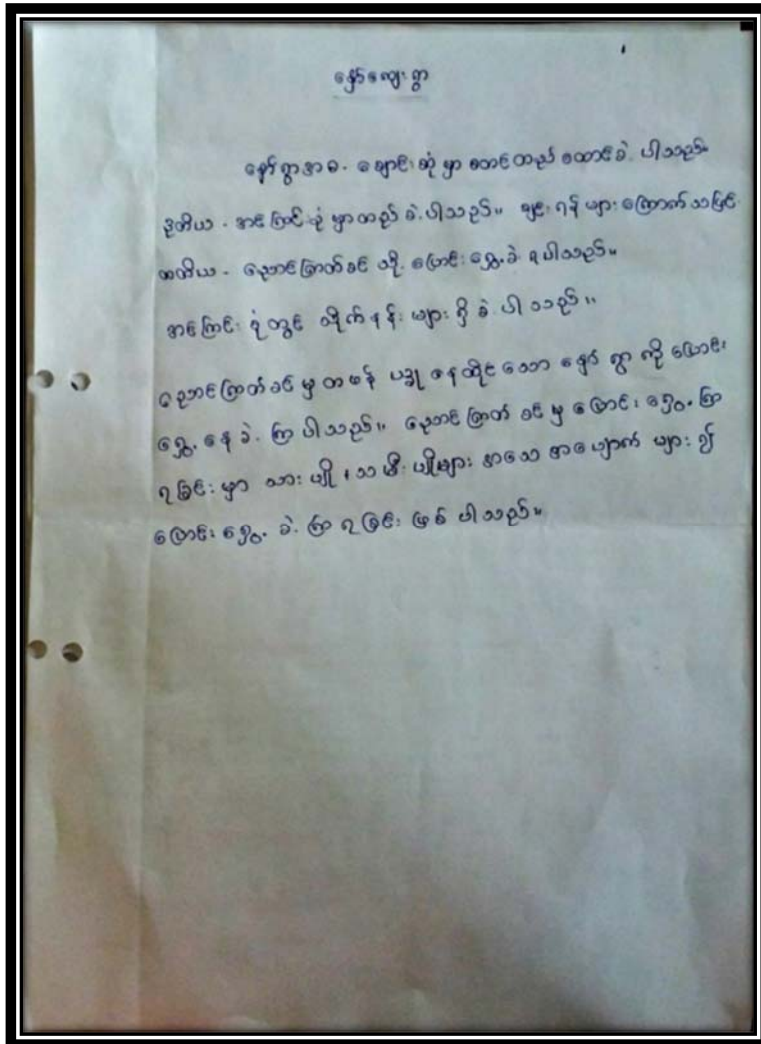 နော်ကျေးရွာ
နော်ရွာအစ - ချောင်းဆုံမှာ စတင်တည်ထောင်ခဲ့ပါသည်။
ဒုတိယ - အင်ကြင်းရုံမှာတည်ခဲ့ပါသည်။ ချင်းရန်များကြောက်သဖြင့်
တတိယ - ညောင်ကြတ်ခင်သို့ပြောင်းရွှေ့ခဲ့ရပါသည်။
အင်ကြင်းရုံတွင် တိုက်နန်းများရှိခဲ့ပါသည်။
ညောင်ကြတ်ခင်မှတဖန် ပစ္စုနေထိုင်သော နော်ရွာကိုပြောင်း
ရွှေ့နေခဲ့ကြပါသည်။ ညောင်ကြတ်ခင်မှပြောင်းရွှေ့ကြ
ရခြင်းမှာ သားပျို၊သမီးပျိုများ အသေအပျောက်များ၍
ပြောင်းရွှေ့ခဲ့ကြရခြင်းဖြစ်ပါသည်။